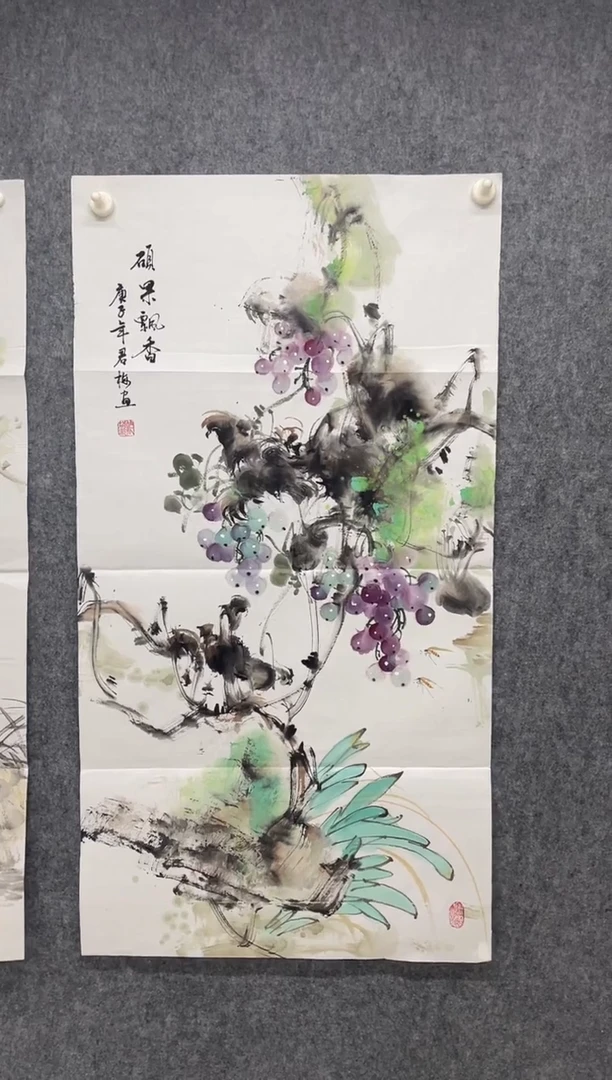 硕果飘香
庚子年君梅画